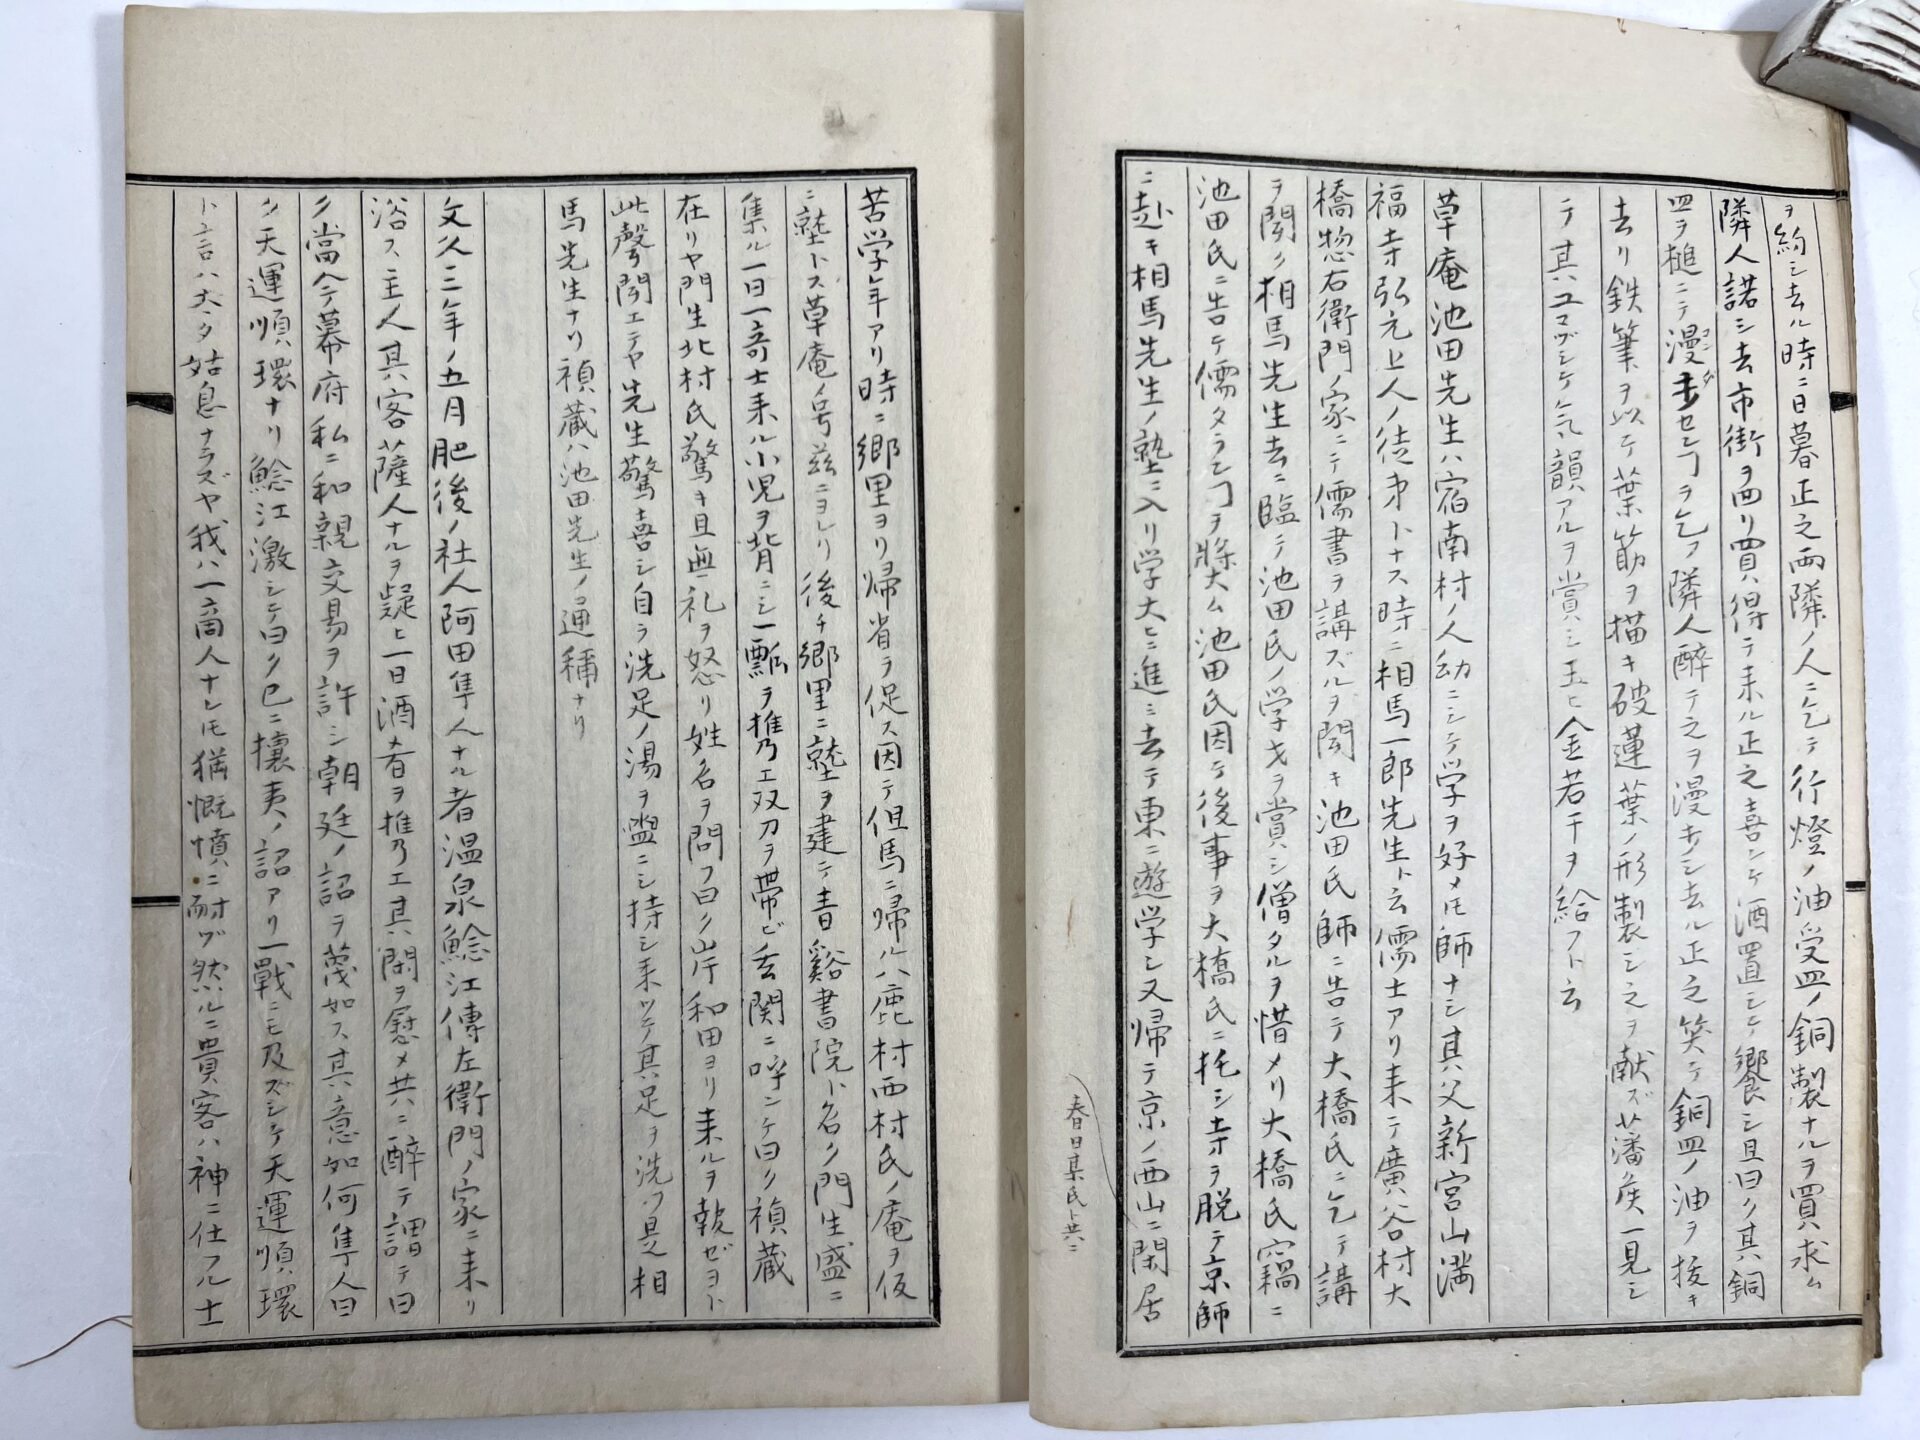 ヲ約シ去ル時ニ日暮正之両隣ノ人ニ乞テ行燈ノ油受皿ノ銅製ナルヲ買求ム
隣人諾シ去市街ヲ回リ買得テ来ル正之喜ンテ酒置シテ饗シ且曰ク其銅
皿ヲ槌ニテ漫キセンヿヲ乞フ隣人酔テ之ヲ漫キシ去ル正之笑テ銅皿ノ油ヲ抜キ
去リ鉄筆ヲ以テ葉筋ヲ描キ破蓮葉ノ形製シ之ヲ献ズ藩侯一見シ
テ其ユコヅシケ気韻アルヲ賞シ玉ヒ金若干ヲ給フト云
草庵池田先生ハ宿南村ノ人幼ニシテ学ヲ好メモ師ナシ其父新宮山満
福寺弘元上人ノ徒弟トナス時ニ相馬一郎先生ト云儒士アリ来テ廣谷村大
橋惣右衛門ノ家ニテ儒書ヲ講ズルヲ聞キ池田氏師ニ告テ大橋氏ニ乞テ講
ヲ聞ク相馬先生去ニ臨テ池田氏ノ学才ヲ賞シ僧タルヲ惜メリ大橋氏竊ニ
池田氏ニ告テ儒タラシヿヲ奬ム池田氏因テ後事ヲ大橋氏ニ托シ寺ヲ脱テ京師
ニ赴キ相馬先生ノ塾ニ入リ学大ヒニ進ミ去テ東ニ遊学シ又帰テ京ノ西山ニ閑居
春日某氏ト共ニ
苦学年アリ時ニ郷里ヨリ帰省ヲ促ス因テ但馬ニ帰ル八鹿村西村氏ノ庵ヲ仮
ニ塾トス草庵ノ号玆ニヨレリ後チ郷里ニ塾ヲ建テ青谿書院ト名ク門生盛ニ
集ル一日一奇士来ル小児ヲ背ニシ一瓢ヲ携エ双刀ヲ帯ビ玄関ニ呼ンテ曰ク禎蔵
在リヤ門生北村氏驚キ且無礼ヲ怒リ姓名ヲ問フ曰ク岸和田ヨリ来ルヲ報ゼヨト
此聲聞エテヤ先生驚喜シ自ラ洗足ノ湯ヲ盥ニシ持シ来ツテ其足ヲ洗フ是相
馬先生ナリ禎蔵ハ池田先生ノ通稱ナリ
文久三年ノ五月肥後ノ社人阿田隼人ナル者温泉鯰江傳左衛門ノ家ニ来リ
浴ス主人其客薩人ナルヲ疑ヒ一日酒肴ヲ携エ其閑ヲ慰メ共ニ酔テ謂テ曰
ク當今幕府私ニ和親交易ヲ許シ朝廷ノ詔ヲ蔑如ス其意如何隼人曰
ク天運順環ナリ鯰江激シテ曰ク已ニ攘夷ノ詔アリ一戦ニモ及ズシテ天運順環
ト言ハ太タ姑息ナラズヤ我ハ一商人ナレモ猶慨憤ニ耐ヅ然ルニ貴客ハ神ニ仕フル士